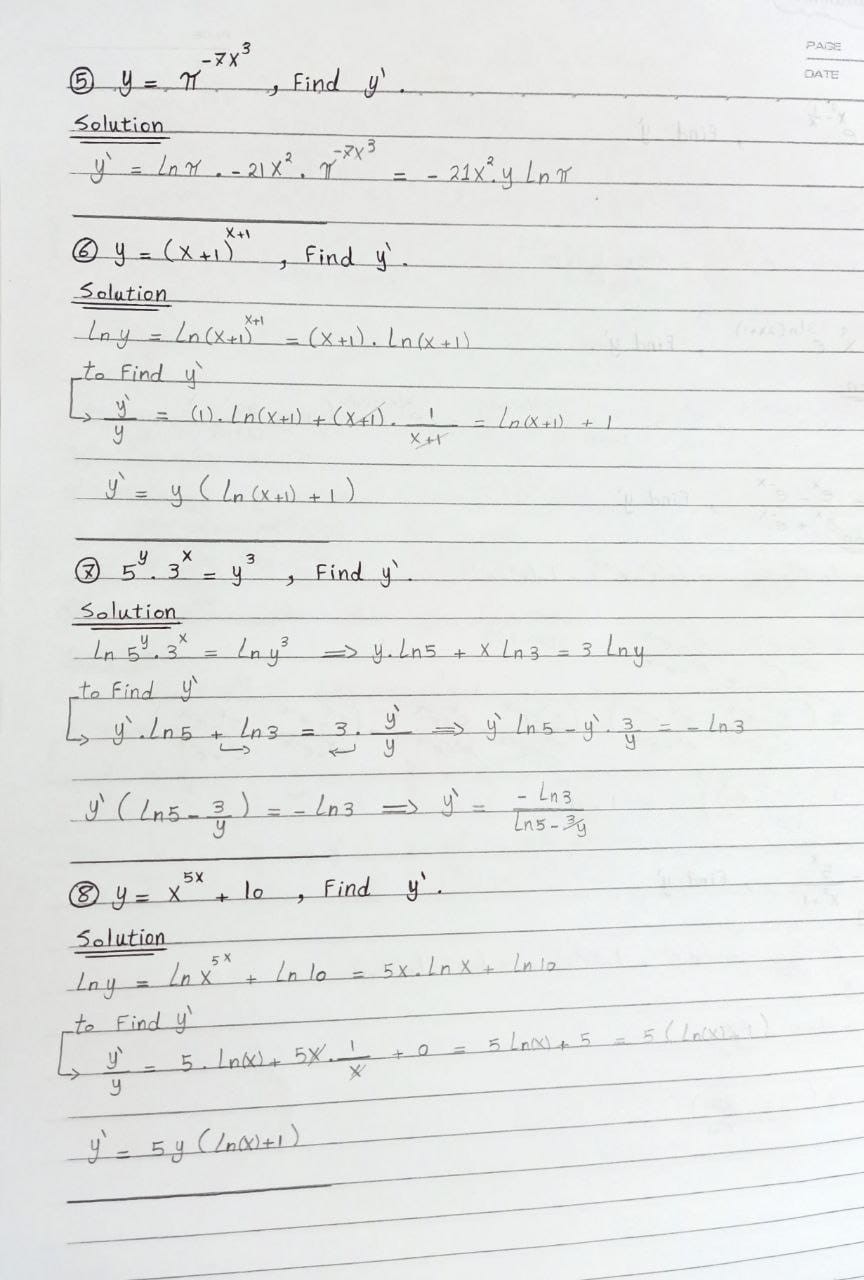 PAGE
DATE
⑤ y = π^(-7x^3) , Find y`.
Solution
y` = Ln π . -21x² . π^(-7x^3) = - 21x².y Ln π
⑥ y = (x+1)^(x+1) , Find y`.
Solution
Ln y = Ln(x+1)^(x+1) = (x+1). Ln(x+1)
to Find y`
↳ y`/y = (1). Ln(x+1) + (x+1). 1/(x+1) = Ln(x+1) + 1
y` = y ( Ln (x+1) + 1 )
⑦ 5^y . 3^x = y^3 , Find y`.
Solution
Ln 5^y . 3^x = Ln y³ ⟹ y. Ln5 + x Ln3 = 3 Ln y
to Find y`
↳ y`. Ln5 + Ln3 = 3 . y`/y ⟹ y` Ln5 - y`. 3/y = - Ln3
y` ( Ln5 - 3/y ) = - Ln3 ⟹ y` = - Ln3 / (Ln5 - 3/y)
⑧ y = x^(5x) + 10 , Find y`.
Solution
Ln y = Ln x^(5x) + Ln 10 = 5x. Ln x + Ln 10
to Find y`
↳ y`/y = 5 . Ln(x) + 5x . 1/x + 0 = 5 Ln(x) + 5 = 5 ( Ln(x) + 1 )
y` = 5 y ( Ln(x)+1 )